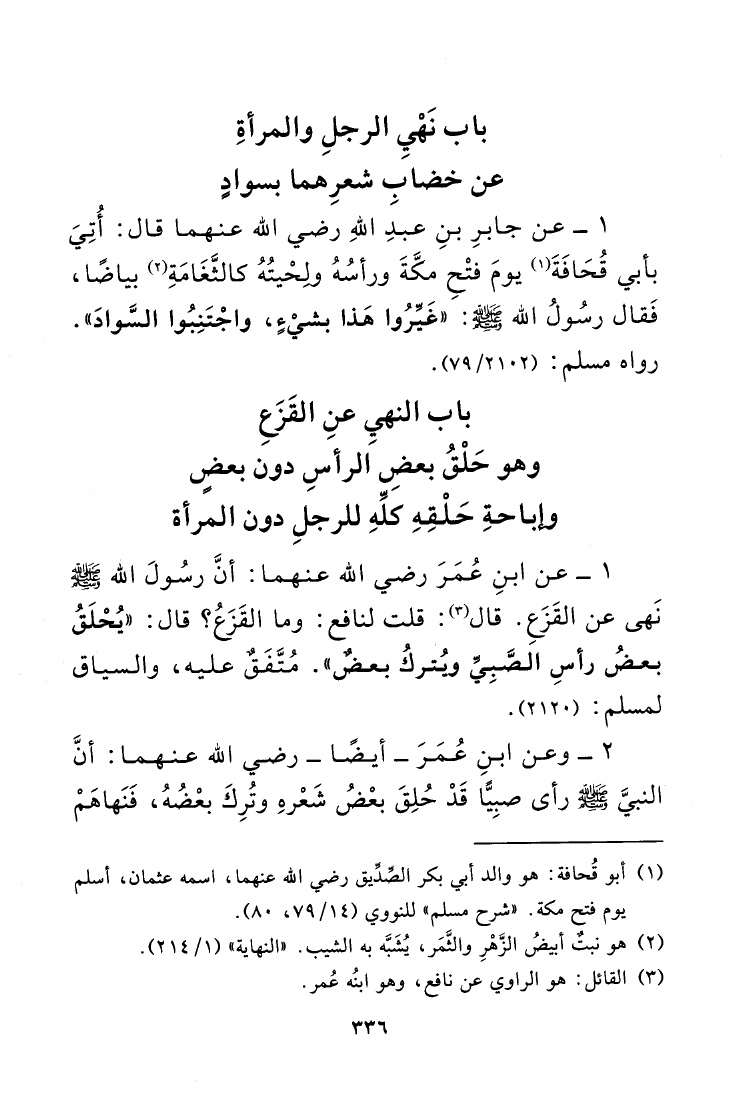 باب نَهْيِ الرجلِ والمرأةِ
عن خضابِ شعرِهما بسوادٍ
١ ـ عن جابرِ بنِ عبدِ اللهِ رضي الله عنهما قال: أُتِيَ
بأبي قُحَافَةَ(١) يومَ فتْحِ مكَّةَ ورأسُهُ ولِحْيتُهُ كالثَّغَامَةِ(٢) بياضًا،
فَقال رسُولُ الله ﷺ: «غَيِّرُوا هَذا بشيْءٍ، واجْتَنِبُوا السَّوادَ».
رواه مسلم: (٧٩/٢١٠٢).
باب النهيِ عنِ القَزَعِ
وهو حَلْقُ بعضِ الرأسِ دون بعضٍ
وإباحةِ حَلْقِهِ كلِّهِ للرجلِ دون المرأة
١ ـ عن ابنِ عُمَرَ رضي الله عنهما: أنَّ رسُولَ الله ﷺ
نَهى عن القَزَعِ. قال(٣): قلت لنافع: وما القَزَعُ؟ قال: «يُحْلَقُ
بعضُ رأسِ الصَّبِيِّ ويُتركُ بعضٌ». مُتَّفَقٌ عليه، والسياق
لمسلم: (٢١٢٠).
٢ ـ وعن ابنِ عُمَرَ ـ أيضًا ـ رضي الله عنهما: أنَّ
النبيَّ ﷺ رأى صبِيًّا قَدْ حُلِقَ بعْضُ شَعْرهِ وتُرِكَ بعْضُهُ، فَنَهاهَمْ
(١) أبو قُحافة: هو والد أبي بكر الصِّدِّيق رضي الله عنهما، اسمه عثمان، أسلم
يوم فتح مكة. «شرح مسلم» للنووي (٧٩/١٤، ٨٠).
(٢) هو نبتٌ أبيضُ الزَّهْر والثَّمَر، يُشَبَّه به الشيب. «النهاية» (٢١٤/١).
(٣) القائل: هو الراوي عن نافع، وهو ابنُه عُمر.
٣٣٦